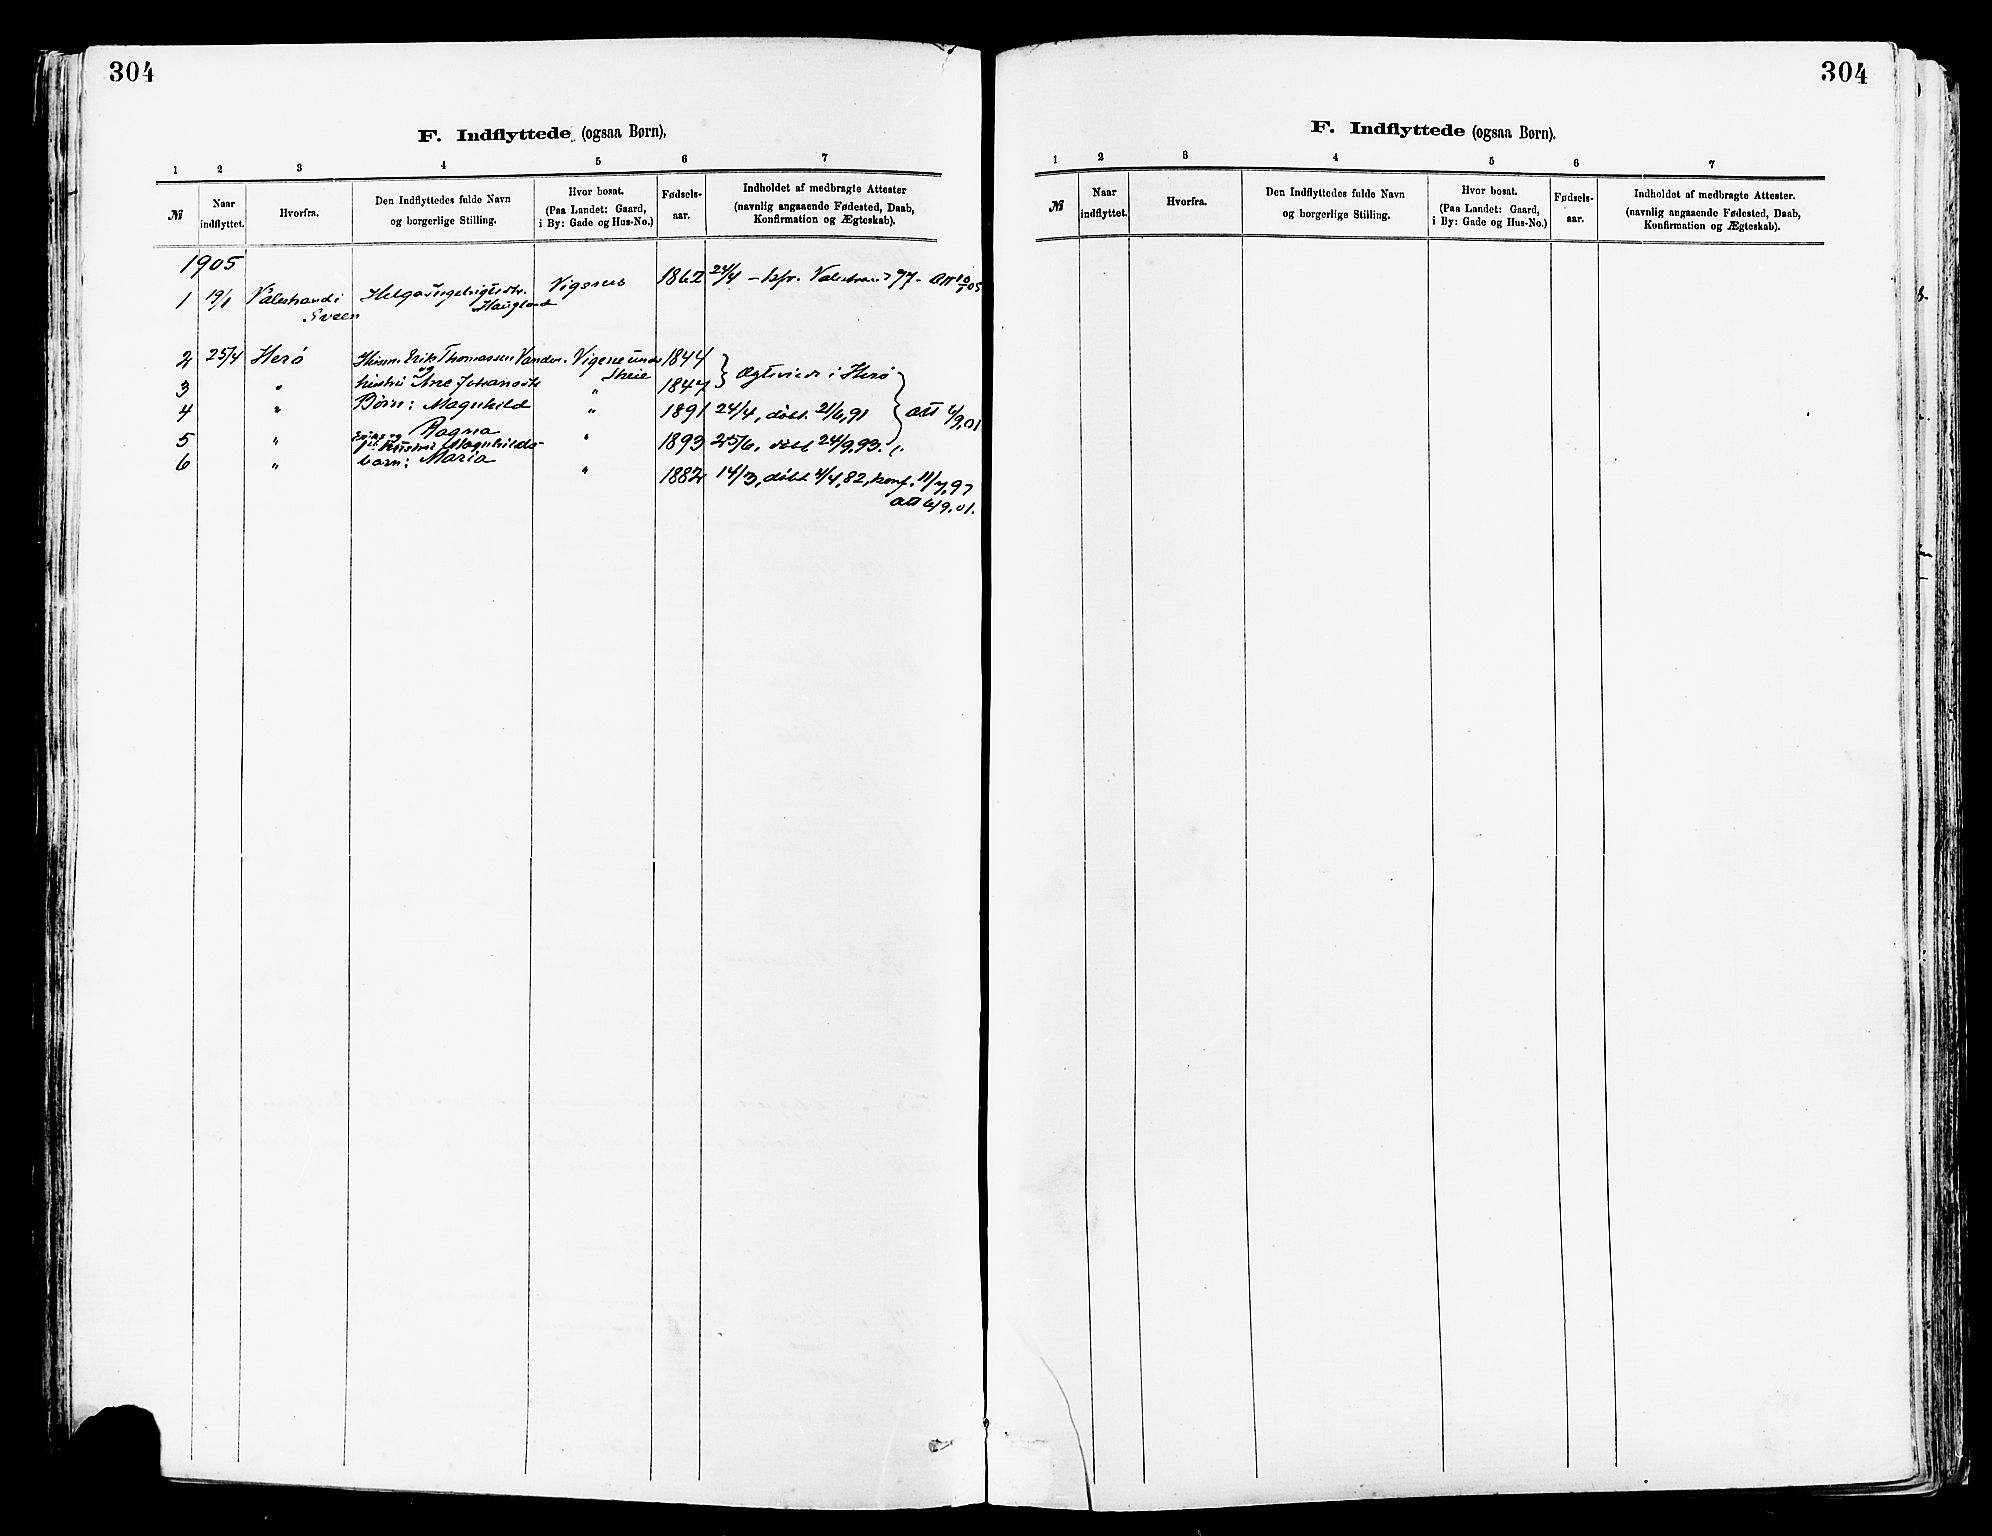 304
F. Indflyttede (ogsaa Børn).
1 2 3 4 5 6 7
№ Naar indflyttet. Hvorfra. Den Indflyttedes fulde Navn og borgerlige Stilling. Hvor bosat. (Paa Landet: Gaard, i By: Gade og Hus-No.) Fødsels-aar. Indholdet af medbragte Attester (navnlig angaaende Fødested, Daab, Konfirmation og Ægteskab).
1905
1 19/1 Valestrand i Helga Ingebrigtsdtr. Vigenes 1862 24/4 - kfr. Valestrand 77 - Att 05
Sveen Haugland
2 25/4 Herø Husm. Erik Thomassen Vigene under 1844
3 " og hustru Ane Johansdtr " Skeie 1847 } Ægteviede i Herø
4 " Børn: Magnhild " 1891 24/4, døbt 21/6,91 } Att 6/9,01
5 " Ragna " 1893 25/6, døbt 24/9,93.
Eriks og hustru Magnhilds
6 " barn: Maria " 1882 14/3, døbt /4,82, konf. 11/7,97
Att 6/9,01.
304
F. Indflyttede (ogsaa Børn).
1 2 3 4 5 6 7
№ Naar indflyttet. Hvorfra. Den Indflyttedes fulde Navn og borgerlige Stilling. Hvor bosat. (Paa Landet: Gaard, i By: Gade og Hus-No.) Fødsels-aar. Indholdet af medbragte Attester. (navnlig angaaende Fødested, Daab, Konfirmation og Ægteskab).